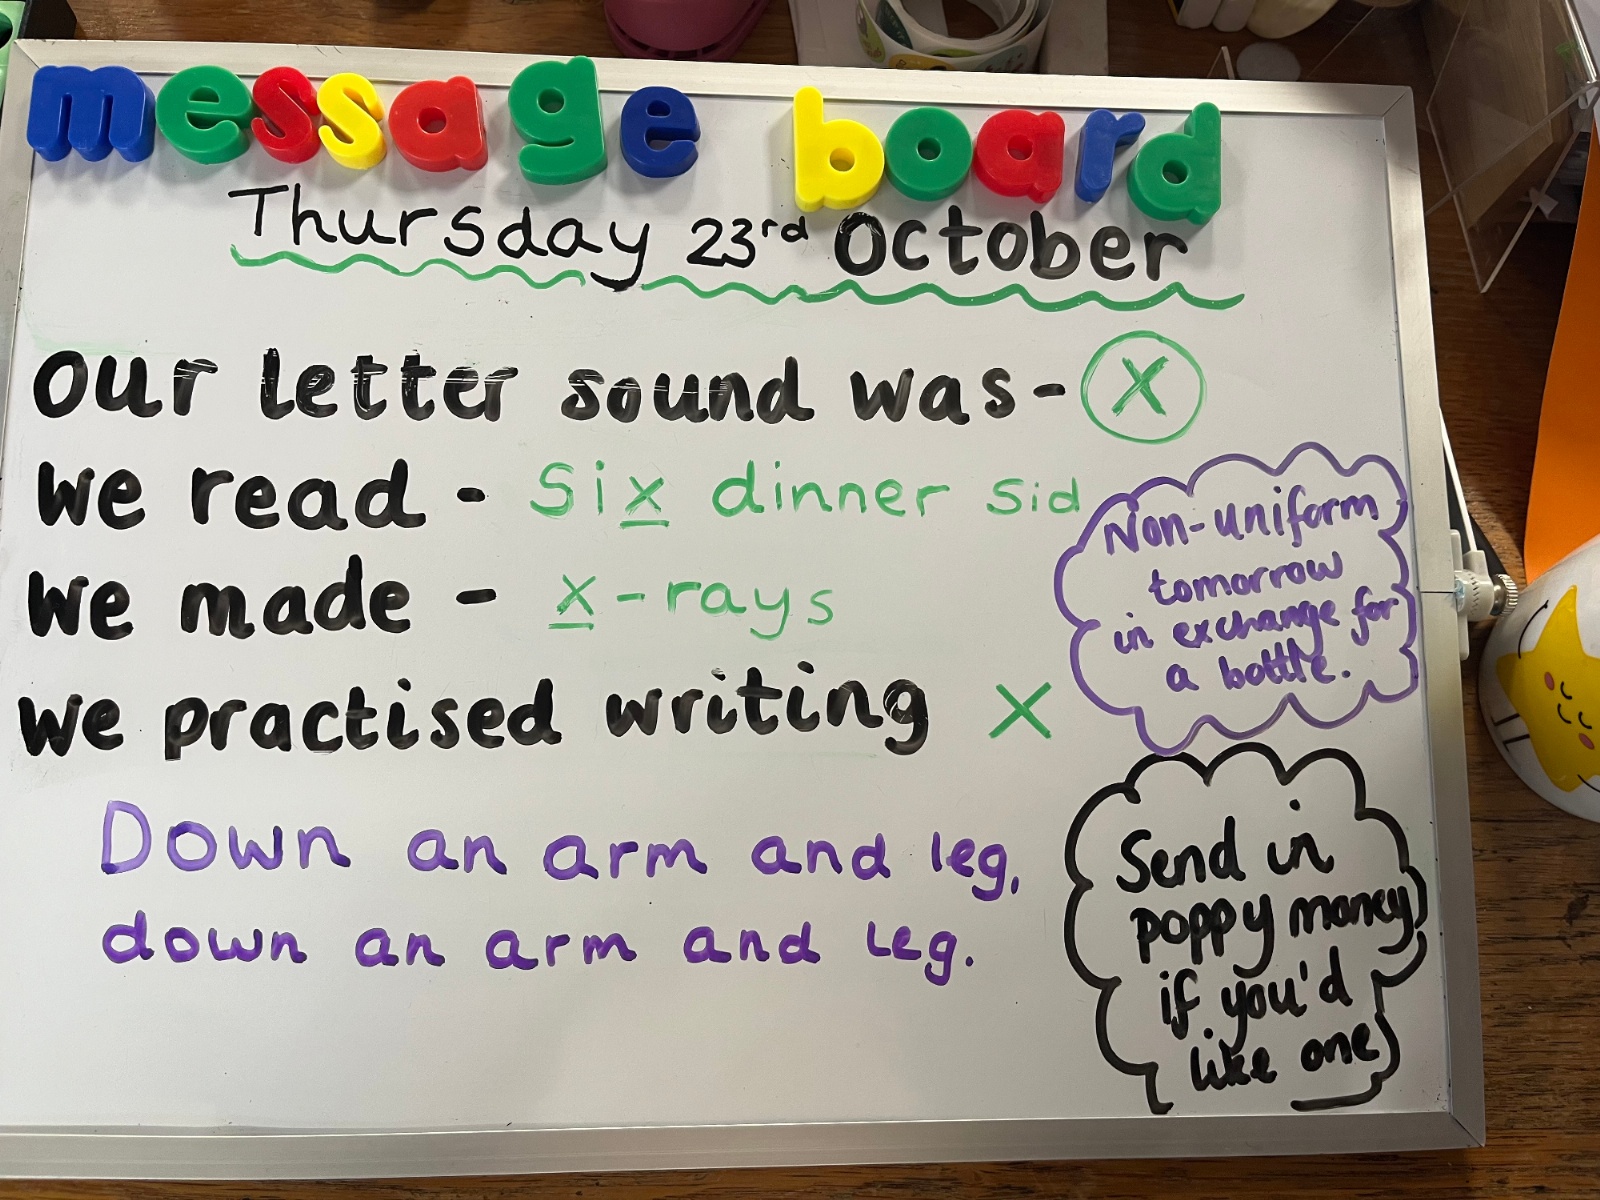 message board
Thursday 23rd October
Our letter sound was - x
We read - Six dinner sid
We made - x-rays
We practised writing x
Down an arm and leg,
down an arm and leg.
Non-uniform
tomorrow
in exchange for
a bottle.
Send in
poppy money
if you'd
like one